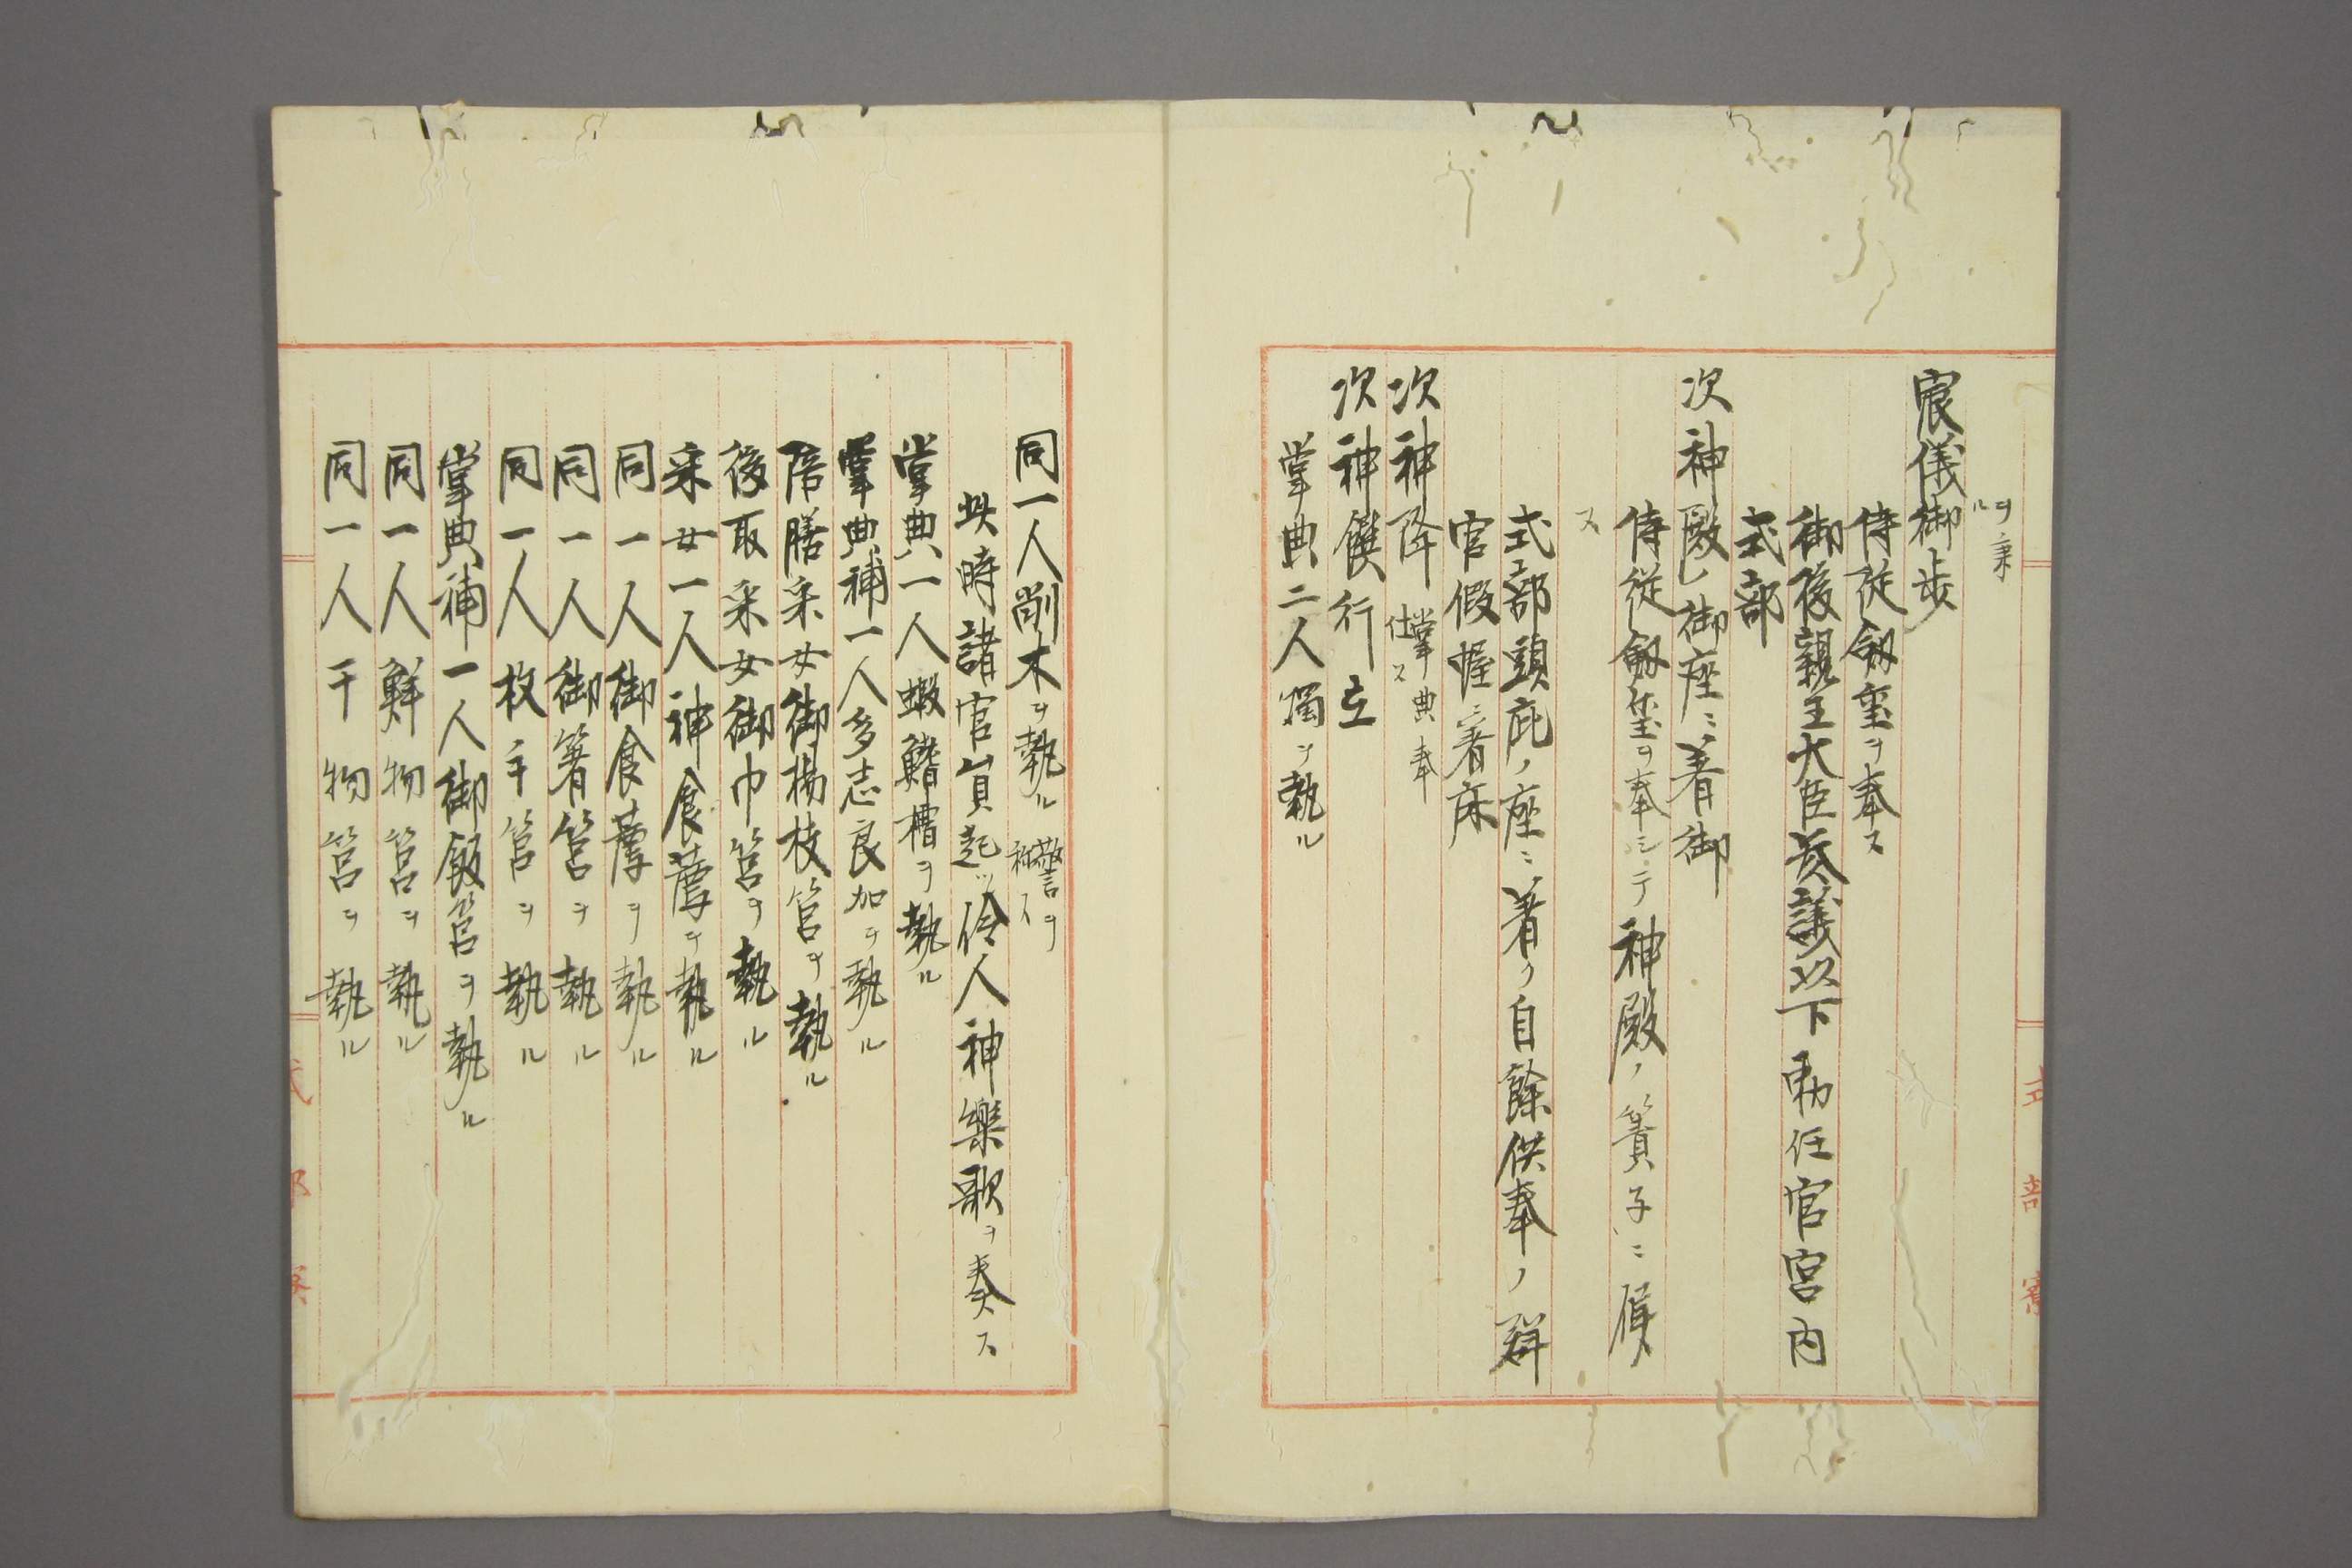 ヲ秉ル
宸儀御歩
侍従劔璽ヲ奉ス
御後親王大臣参議以下勅任官宮内
式部
次神殿ノ御座ニ着御
侍従劔璽ヲ奉シテ神殿ノ簀子ニ候
ス
式部頭庇ノ座ニ着ク自餘供奉ノ群
官假幄ニ着床
次神降 掌典奉仕ス
次神饌行立
掌典二人燭ヲ執ル
同一人削木ヲ執ル 警ヲ称ス
此時諸官員起ツ伶人神樂歌ヲ奏ス
掌典一人蝦鰭槽ヲ執ル
掌典補一人多志良加ヲ執ル
陪膳采女御楊枝筥ヲ執ル
後取采女御巾筥ヲ執ル
采女一人神食薦ヲ執ル
同一人御食薦ヲ執ル
同一人御箸筥ヲ執ル
同一人枚手筥ヲ執ル
掌典補一人御飯筥ヲ執ル
同一人鮮物筥ヲ執ル
同一人干物筥ヲ執ル
式部寮